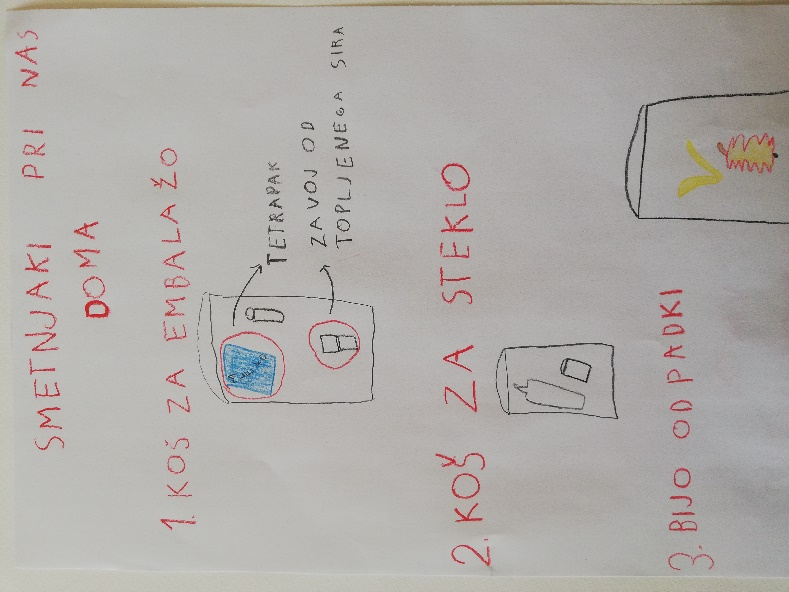 SMETNJAKI PRI NAS
DOMA
1. KOŠ ZA EMBALAŽO
TETRAPAK
ZAVOJ OD
TOPLJENEGA SIRA
2. KOŠ ZA STEKLO
3. BIJO ODPADKI